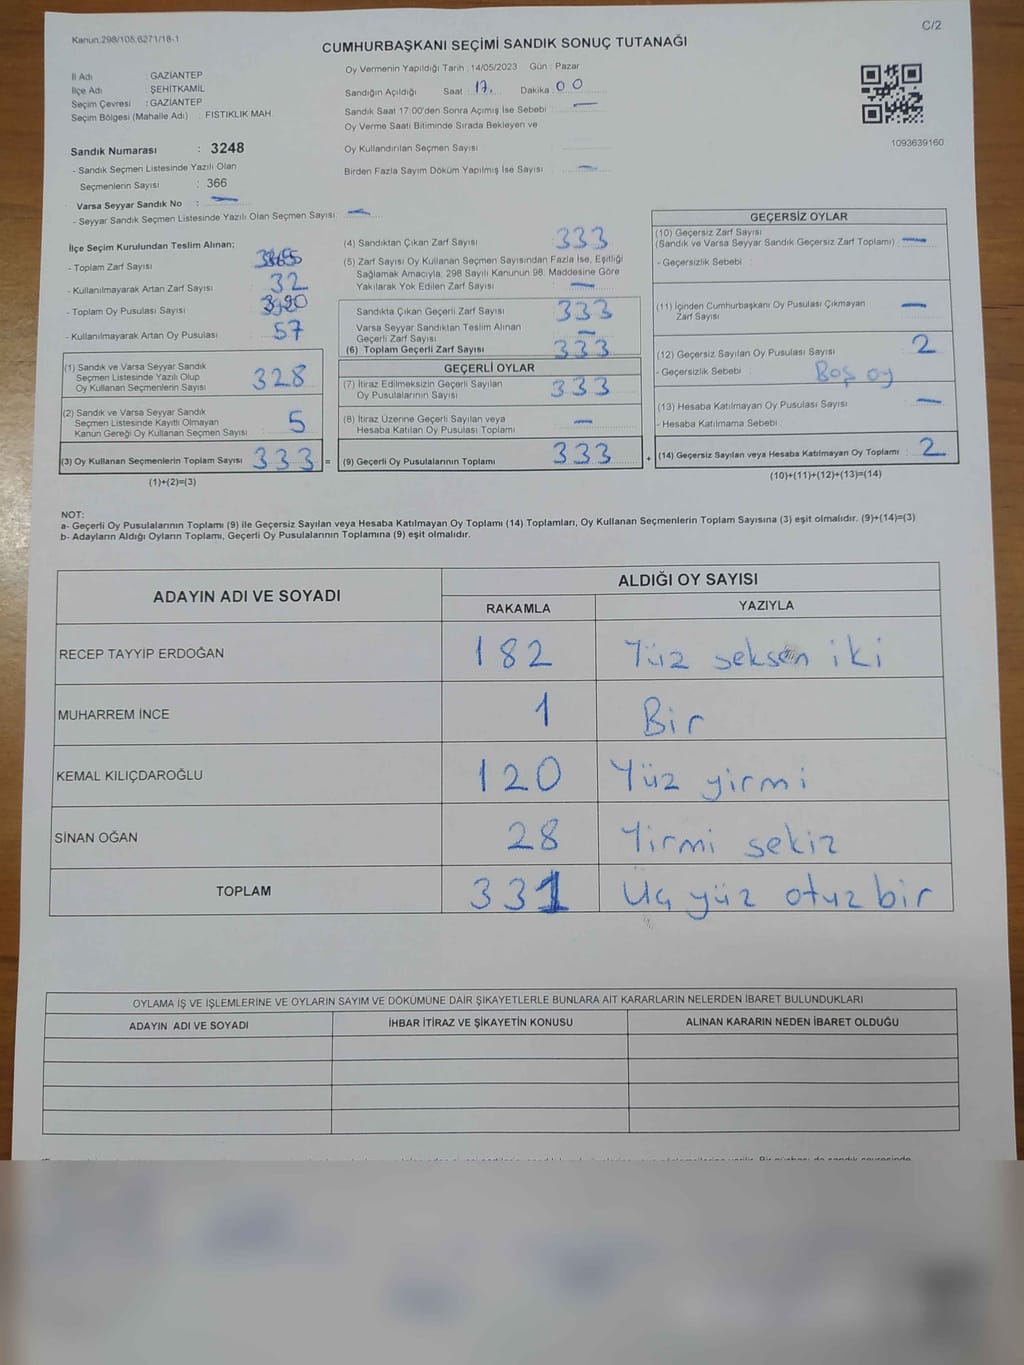 Kanun.298/105,6271/18-1
C/2
CUMHURBAŞKANI SEÇİMİ SANDIK SONUÇ TUTANAĞI
İl Adı : GAZİANTEP
İlçe Adı : ŞEHİTKAMİL
Seçim Çevresi : GAZİANTEP
Seçim Bölgesi (Mahalle Adı) : FISTIKLIK MAH.
Oy Vermenin Yapıldığı Tarih : 14/05/2023 Gün : Pazar
Sandığın Açıldığı Saat : 17. Dakika 00
Sandık Saat 17:00'den Sonra Açımış İse Sebebi : —
Oy Verme Saati Bitiminde Sırada Bekleyen ve
Oy Kullandırılan Seçmen Sayısı :
Birden Fazla Sayım Döküm Yapılmış İse Sayısı : —
1093639160
Sandık Numarası : 3248
- Sandık Seçmen Listesinde Yazılı Olan
Seçmenlerin Sayısı : 366
Varsa Seyyar Sandık No : —
- Seyyar Sandık Seçmen Listesinde Yazılı Olan Seçmen Sayısı : —
İlçe Seçim Kurulundan Teslim Alınan;
- Toplam Zarf Sayısı
- Kullanılmayarak Artan Zarf Sayısı : 32
- Toplam Oy Pusulası Sayısı
- Kullanılmayarak Artan Oy Pusulası : 57
(1) Sandık ve Varsa Seyyar Sandık
Seçmen Listesinde Yazılı Olup
Oy Kullanan Seçmenlerin Sayısı 328
(2) Sandık ve Varsa Seyyar Sandık
Seçmen Listesinde Kayıtlı Olmayan
Kanun Gereği Oy Kullanan Seçmen Sayısı : 5
(3) Oy Kullanan Seçmenlerin Toplam Sayısı 333 =
(1)+(2)=(3)
(4) Sandıktan Çıkan Zarf Sayısı 333
(5) Zarf Sayısı Oy Kullanan Seçmen Sayısından Fazla İse, Eşitliği
Sağlamak Amacıyla, 298 Sayılı Kanunun 98. Maddesine Göre
Yakılarak Yok Edilen Zarf Sayısı : —
Sandıkta Çıkan Geçerli Zarf Sayısı : 333
Varsa Seyyar Sandıktan Teslim Alınan
Geçerli Zarf Sayısı : —
(6) Toplam Geçerli Zarf Sayısı : 333
GEÇERLİ OYLAR
(7) İtiraz Edilmeksizin Geçerli Sayılan
Oy Pusulalarının Sayısı : 333
(8) İtiraz Üzerine Geçerli Sayılan veya
Hesaba Katılan Oy Pusulası Toplamı : —
(9) Geçerli Oy Pusulalarının Toplamı : 333 +
GEÇERSİZ OYLAR
(10) Geçersiz Zarf Sayısı
(Sandık ve Varsa Seyyar Sandık Geçersiz Zarf Toplamı) : —
- Geçersizlik Sebebi :
(11) İçinden Cumhurbaşkanı Oy Pusulası Çıkmayan
Zarf Sayısı : —
(12) Geçersiz Sayılan Oy Pusulası Sayısı : 2
- Geçersizlik Sebebi : Boş oy
(13) Hesaba Katılmayan Oy Pusulası Sayısı : —
- Hesaba Katılmama Sebebi :
(14) Geçersiz Sayılan veya Hesaba Katılmayan Oy Toplamı : 2
(10)+(11)+(12)+(13)=(14)
NOT:
a- Geçerli Oy Pusulalarının Toplamı (9) ile Geçersiz Sayılan veya Hesaba Katılmayan Oy Toplamı (14) Toplamları, Oy Kullanan Seçmenlerin Toplam Sayısına (3) eşit olmalıdır. (9)+(14)=(3)
b- Adayların Aldığı Oyların Toplamı, Geçerli Oy Pusulalarının Toplamına (9) eşit olmalıdır.
ADAYIN ADI VE SOYADI ALDIĞI OY SAYISI
RAKAMLA YAZIYLA
RECEP TAYYİP ERDOĞAN 182 Yüz seksen iki
MUHARREM İNCE 1 Bir
KEMAL KILIÇDAROĞLU 120 Yüz yirmi
SİNAN OĞAN 28 Yirmi sekiz
TOPLAM 331 Üç yüz otuz bir
OYLAMA İŞ VE İŞLEMLERİNE VE OYLARIN SAYIM VE DÖKÜMÜNE DAİR ŞİKAYETLERLE BUNLARA AİT KARARLARIN NELERDEN İBARET BULUNDUKLARI
ADAYIN ADI VE SOYADI İHBAR İTİRAZ VE ŞİKAYETİN KONUSU ALINAN KARARIN NEDEN İBARET OLDUĞU